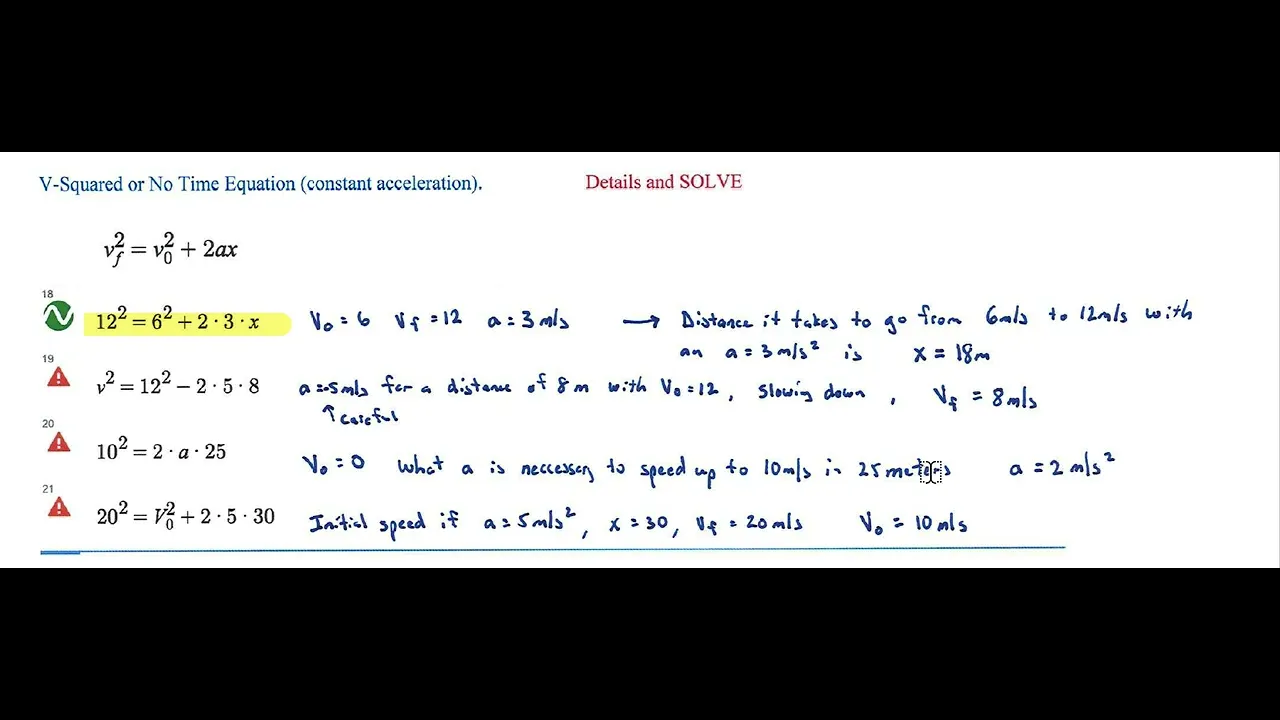 V-Squared or No Time Equation (constant acceleration). Details and SOLVE
v_f^2 = v_0^2 + 2ax
18
12² = 6² + 2 · 3 · x V₀ = 6 V_f = 12 a = 3 m/s → Distance it takes to go from 6m/s to 12m/s with
an a = 3 m/s² is x = 18m
19
v² = 12² − 2 · 5 · 8 a = -5m/s for a distance of 8 m with V₀ = 12, slowing down, V_f = 8 m/s
↑ careful
20
10² = 2 · a · 25 V₀ = 0 What a is neccessary to speed up to 10m/s in 25 meters a = 2 m/s²
21
20² = V₀² + 2 · 5 · 30 Initial speed if a = 5 m/s², x = 30, V_f = 20 m/s V₀ = 10 m/s